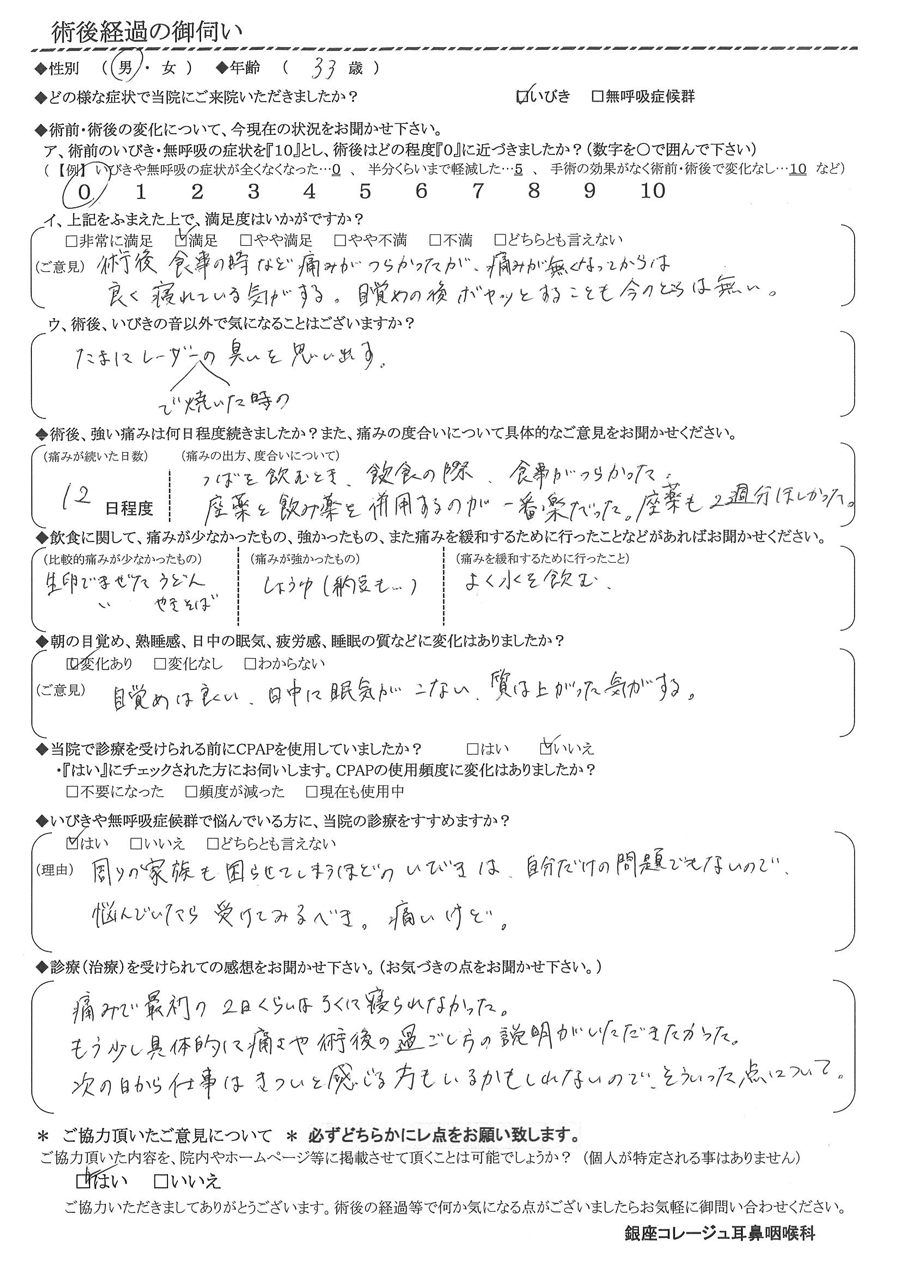 術後経過の御伺い
◆性別 （ 男 ・ 女 ） ◆年齢 （ 33 歳 ）
◆どの様な症状で当院にご来院いただきましたか？ ☑いびき □無呼吸症候群
◆術前・術後の変化について、今現在の状況をお聞かせ下さい。
ア、術前のいびき・無呼吸の症状を『10』とし、術後はどの程度『0』に近づきましたか？（数字を〇で囲んで下さい）
（【例】いびきや無呼吸の症状が全くなくなった…0 、 半分くらいまで軽減した…5 、 手術の効果がなく術前・術後で変化なし…10 など）
0 1 2 3 4 5 6 7 8 9 10
イ、上記をふまえた上で、満足度はいかがですか？
□非常に満足 ☑満足 □やや満足 □やや不満 □不満 □どちらとも言えない
（ご意見） 術後 食事の時など痛みがつらかったが、痛みが無くなってからは
良く寝れている気がする。目覚めの後ボヤッとすることも今のところは無い。
ウ、術後、いびきの音以外で気になることはございますか？
たまにレーザーの臭いを思い出す。
で焼いた時の
◆術後、強い痛みは何日程度続きましたか？また、痛みの度合いについて具体的なご意見をお聞かせください。
（痛みが続いた日数） （痛みの出方、度合いについて）
つばを飲むとき、飲食の際、食事がつらかった。
12 日程度 座薬と飲み薬を併用するのが一番楽だった。座薬も2週分ほしかった。
◆飲食に関して、痛みが少なかったもの、強かったもの、また痛みを緩和するために行ったことなどがあればお聞かせください。
（比較的痛みが少なかったもの） （痛みが強かったもの） （痛みを緩和するために行ったこと）
生卵でまぜたうどん しょうゆ（納豆も…） よく水を飲む、
〃 やきそば
◆朝の目覚め、熟睡感、日中の眠気、疲労感、睡眠の質などに変化はありましたか？
☑変化あり □変化なし □わからない
（ご意見） 目覚めは良い、日中に眠気がこない、質は上がった気がする。
◆当院で診療を受けられる前にCPAPを使用していましたか？ □はい ☑いいえ
・『はい』にチェックされた方にお伺いします。CPAPの使用頻度に変化はありましたか？
□不要になった □頻度が減った □現在も使用中
◆いびきや無呼吸症候群で悩んでいる方に、当院の診療をすすめますか？
☑はい □いいえ □どちらとも言えない
（理由） 周りの家族も困らせてしまうほどのいびきは、自分だけの問題でもないので、
悩んでいたら受けてみるべき。痛いけど。
◆診療（治療）を受けられての感想をお聞かせ下さい。（お気づきの点をお聞かせ下さい。）
痛みで最初の2日くらいはろくに寝られなかった。
もう少し具体的に痛さや術後の過ごし方の説明がいただきたかった。
次の日から仕事はきついと感じる方もいるかもしれないので、そういった点について。
＊ ご協力頂いたご意見について ＊ 必ずどちらかにレ点をお願い致します。
ご協力頂いた内容を、院内やホームページ等に掲載させて頂くことは可能でしょうか？（個人が特定される事はありません）
☑はい □いいえ
ご協力いただきましてありがとうございます。術後の経過等で何か気になる点がございましたらお気軽に御問い合わせください。
銀座コレージュ耳鼻咽喉科